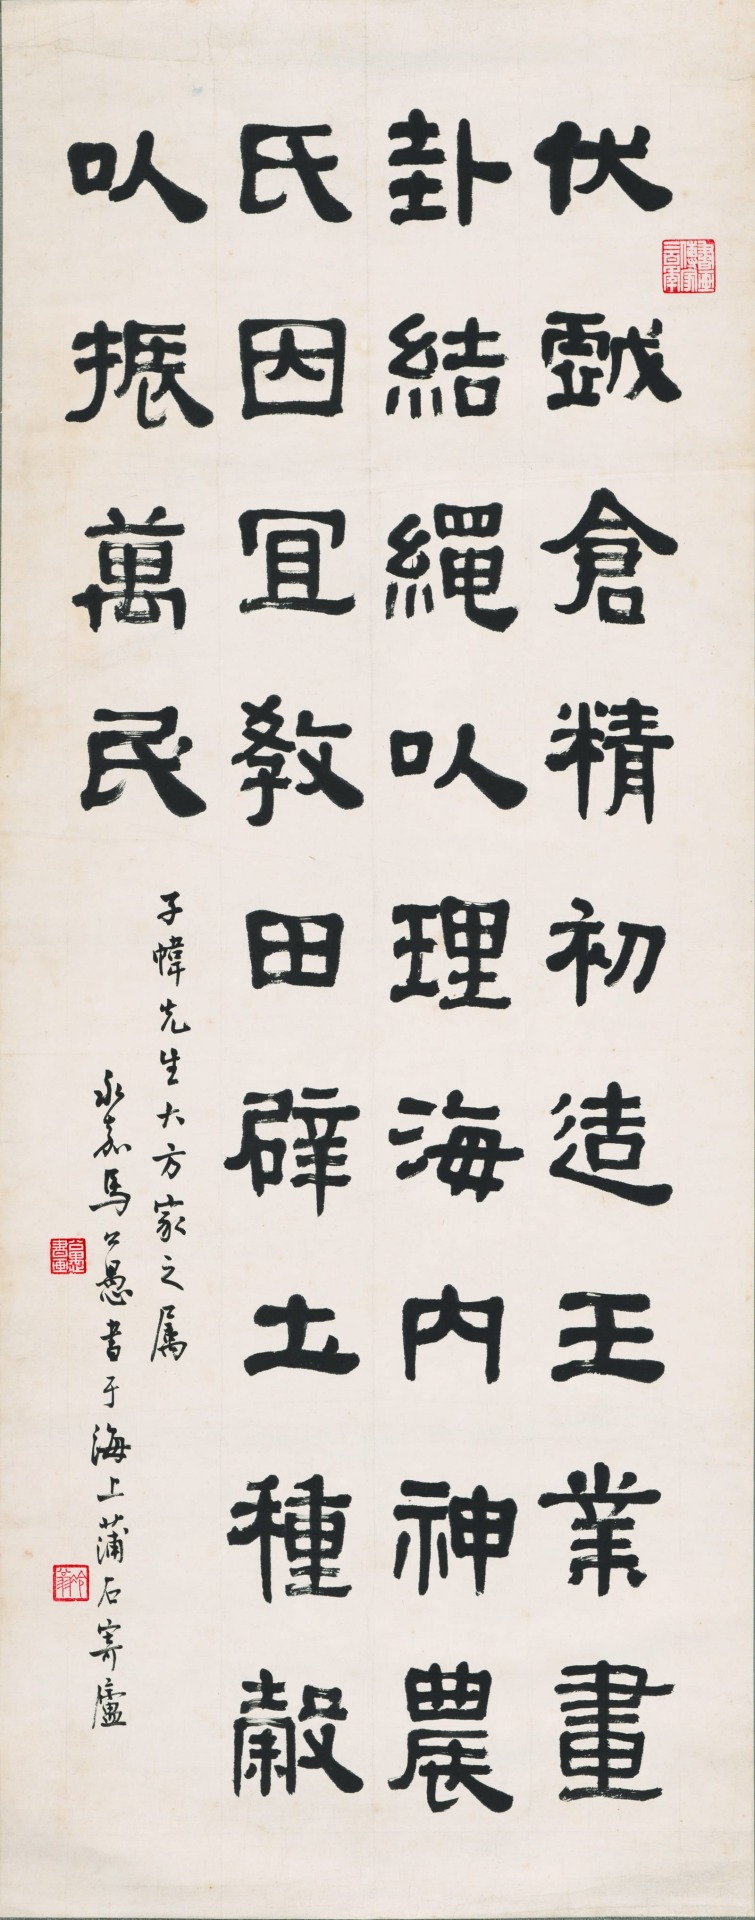 伏戱倉精初造王業畫
卦結繩以理海內神農
氏因宜教田辟土種穀
以振萬民
子幃先生大方家之属
永嘉馬公愚書于海上蒲石寄廬
公愚書畫
冷翁